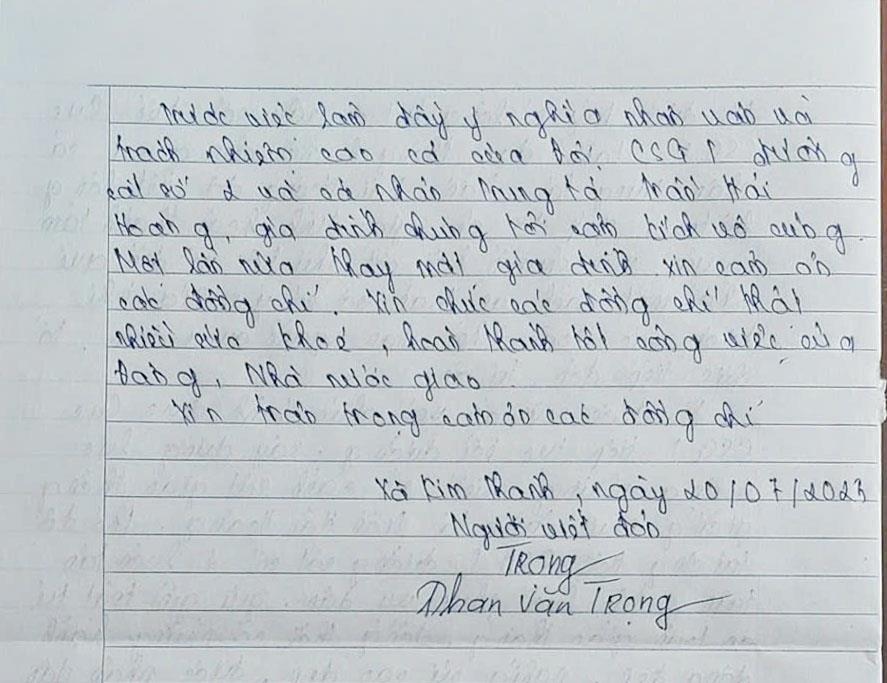 Trước việc làm đầy ý nghĩa nhân văn và
trách nhiệm cao cả của Đội CSGT đường
cát số 2 và cá nhân Trung tá Trần Hải
Hoàng, gia đình chúng tôi cảm kích vô cùng.
Một lần nữa thay mặt gia đình xin cảm ơn
các đồng chí. Xin chúc các đồng chí thật
nhiều sức khoẻ, hoàn thành tốt công việc của
Đảng, Nhà nước giao
Xin trân trọng cảm ơn các đồng chí
Xã Kim Thanh, ngày 20/07/2023
Người viết đơn
Trọng
Phan Văn Trọng